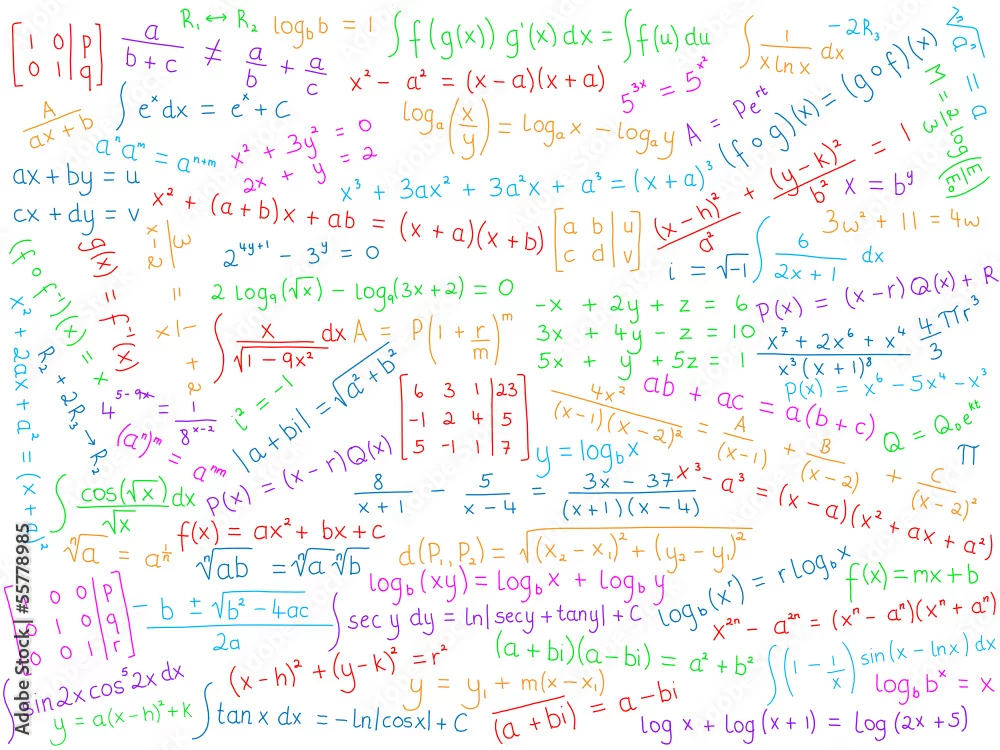 [1 0|p
0 1|q]
a/(b + c) ≠ a/b + a/c
R₁ ↔ R₂
log_b b = 1
∫ f(g(x)) g'(x) dx = ∫ f(u) du
∫ 1/(x ln x) dx
-2R₃
A/(ax + b)
∫ eˣ dx = eˣ + C
x² - a² = (x - a)(x + a)
5³ˣ = 5^(x²)
log_a (x/y) = log_a x - log_a y
A = Pe^(rt)
(f ∘ g)(x) = (g ∘ f)(x)
aⁿaᵐ = aⁿ⁺ᵐ
x² + 3y² = 0
2x + y = 2
ax + by = u
cx + dy = v
x³ + 3ax² + 3a²x + a³ = (x + a)³
(x - h)²/a² + (y - k)²/b² = 1
x = b^y
x² + (a + b)x + ab = (x + a)(x + b)
[a b|u
c d|v]
3w² + 11 = 4w
2^(4y+1) - 3^y = 0
i = √-1
∫ 6/(2x + 1) dx
(f ∘ f⁻¹)(x) = x
g(x) = f⁻¹(x)
2 log₉(√x) - log₉(3x + 2) = 0
-x + 2y + z = 6
3x + 4y - z = 10
5x + y + 5z = 1
P(x) = (x - r) Q(x) + R
x² + 2ax + a² = (x + a)²
R₂ + 2R₃ → R₂
∫ x/√(1 - 9x²) dx
A = P(1 + r/m)^m
(x⁷ + 2x⁶ + x⁴)/(x³(x + 1)⁸)
4/3 πr³
4^(5-9x) = 1/8^(x-2)
i² = -1
|a + bi| = √(a² + b²)
[6 3 1|23
-1 2 4|5
5 -1 1|7]
4x²/((x - 1)(x - 2)²) = A/(x - 1) + B/(x - 2) + C/(x - 2)²
ab + ac = a(b + c)
P(x) = x⁶ - 5x⁴ - x³
Q = Q₀e^(kt)
π
(aⁿ)ᵐ = aⁿᵐ
P(x) = (x - r) Q(x)
y = log_b x
∫ cos(√x)/√x dx
8/(x + 1) - 5/(x - 4) = (3x - 37)/((x + 1)(x - 4))
x³ - a³ = (x - a)(x² + ax + a²)
ⁿ√a = a^(1/n)
f(x) = ax² + bx + c
ⁿ√ab = ⁿ√a ⁿ√b
d(P₁, P₂) = √((x₂ - x₁)² + (y₂ - y₁)²)
log_b (xy) = log_b x + log_b y
log_b (xʳ) = r log_b x
f(x) = mx + b
0 0|p
1 0|q
0 0 1|r]
- b ± √(b² - 4ac)
2a
∫ sec y dy = ln|sec y + tan y| + C
x²ⁿ - a²ⁿ = (xⁿ - aⁿ)(xⁿ + aⁿ)
(a + bi)(a - bi) = a² + b²
∫ (1 - 1/x) sin(x - ln x) dx
∫ sin 2x cos⁵ 2x dx
(x - h)² + (y - k)² = r²
y = y₁ + m(x - x₁)
log_b bˣ = x
y = a(x - h)² + k
∫ tan x dx = -ln|cos x| + C
(a + bi) = a - bi
log x + log (x + 1) = log (2x + 5)
Adobe Stock | #55778985